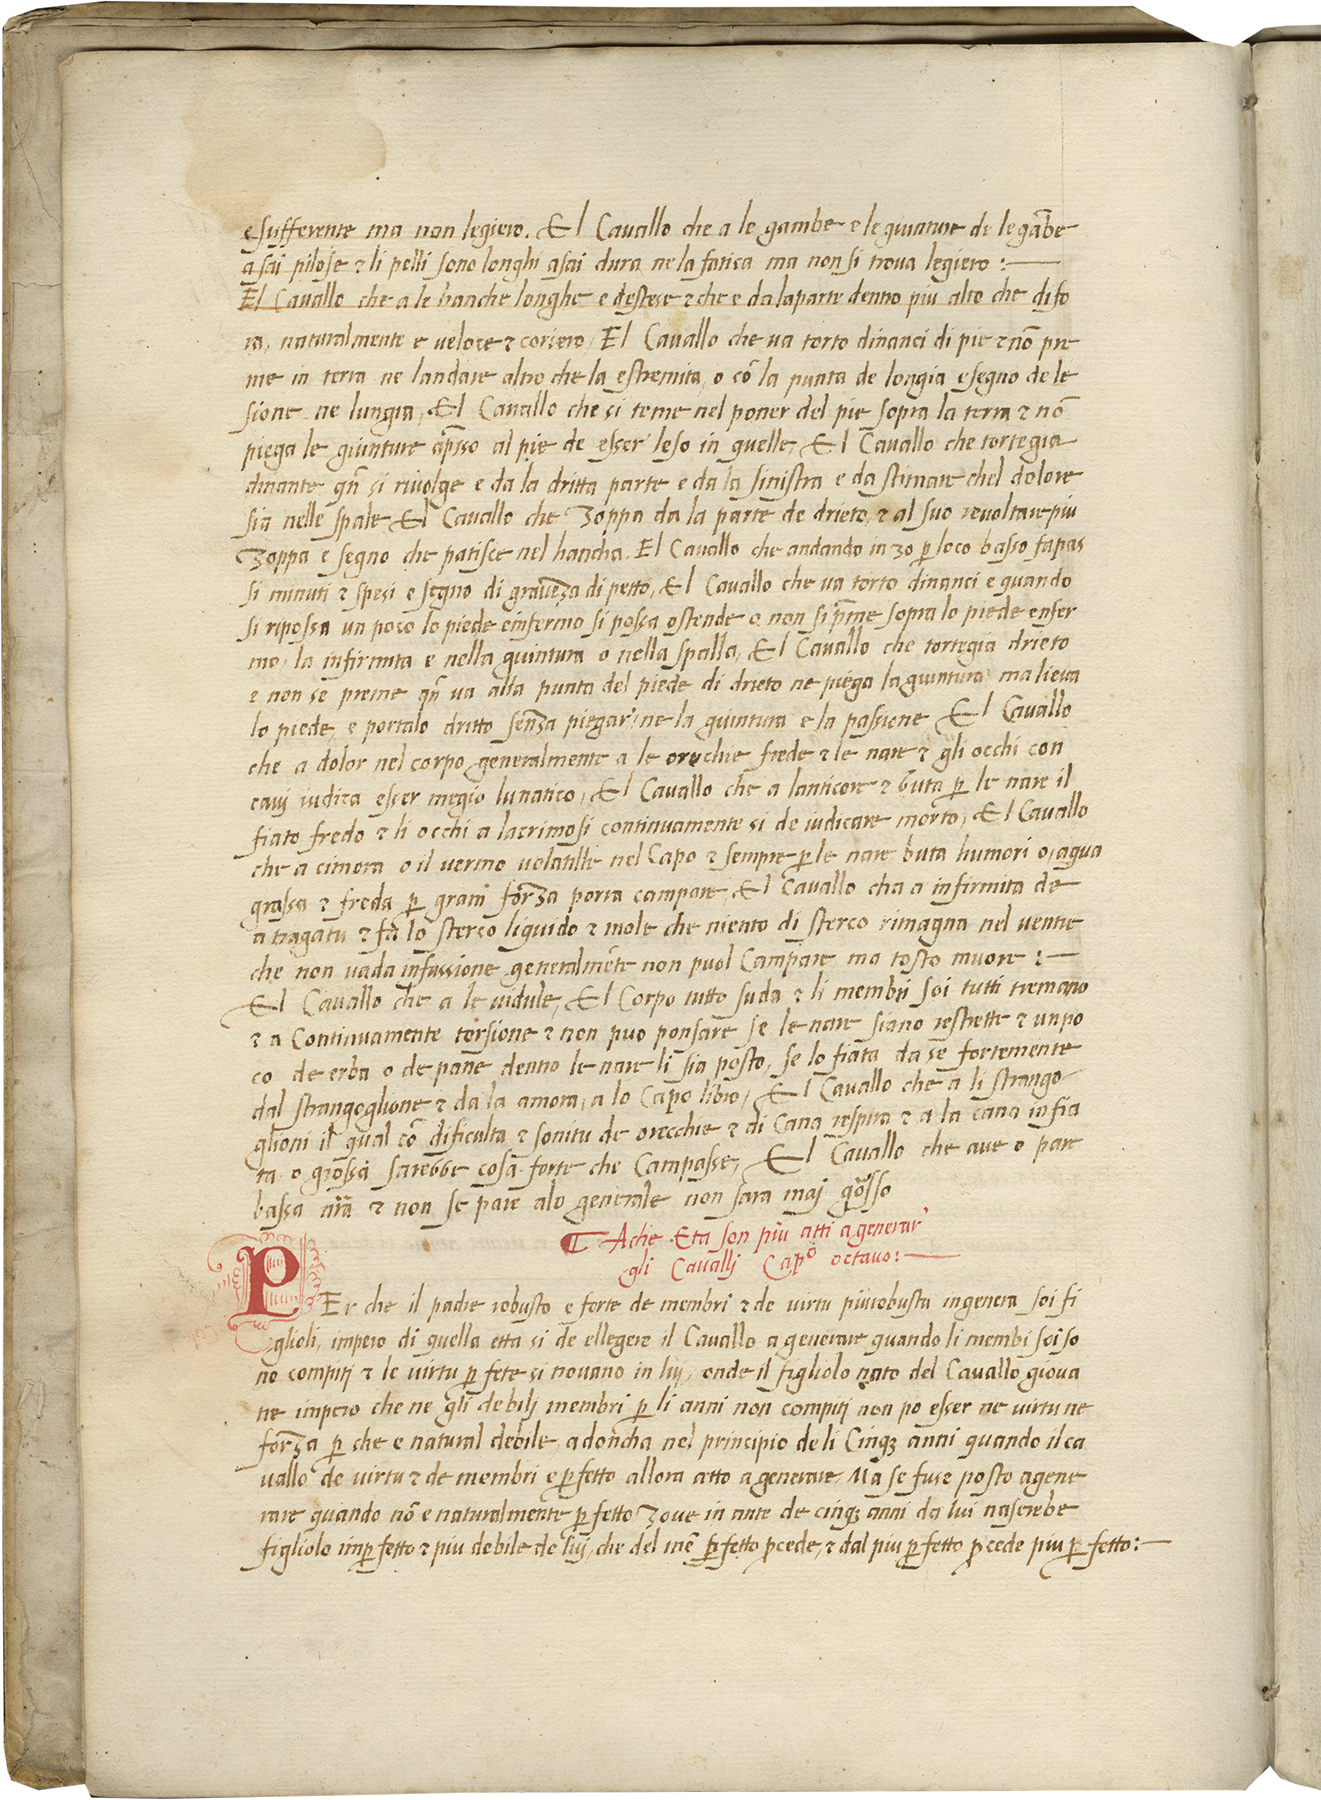 e sufferente ma non legiero. El Cauallo che a le gambe e le giunture de le gābe
asai pilose & li pelli sono longhi asai dura ne la fatica ma non si trova legiero :—
El Cauallo che a le hanche longhe e destese & che e da la parte dentro piu alto che di fo
ra, naturalmente e veloce & coriero, El Cauallo che va torto dinanci di pie & nō pre
me in terra ne landare altro che la estremita, o cō la punta de longia e segno de le
sione ne lungia, El Cauallo che si teme nel poner del pie sopra la terra & nō
piega le giunture apsso al pie de esser leso in quelle, El Cauallo che tortegia
dinante qn̄ si rivolge e da la dritta parte e da la sinistra e da stimare chel dolore
sia nelle spale El Cauallo che Zoppa da la parte de drieto, & al suo revoltare piu
Zoppa e segno che patisce nel hancha. El Cauallo che andando in zo p̱ loco basso fa pas
si minuti & spesi e segno di graveza di petto, El Cauallo che va torto dinanci e quando
si ripossa un poco lo piede einfermo si possa ostende o non si p̄me sopra lo piede enfer
mo, la infirmita e nella giuntura o nella spalla, El Cauallo che tortegia drieto
e non se preme qn̄ va alla punta del piede di drieto ne piega la giuntura ma lieva
lo piede, e portalo dritto senza piegar' ne la giuntura e la passione El Cauallo
che a dolor nel corpo generalmente a le orechie frede & le nare & gli occhi con
cavi iudica esser megio lunatico, El Cauallo che a lanticore & buta p̱ le nare il
fiato fredo & li occhi a lacrimosi continuamente si de iudicare morto, El Cauallo
che a cimora o il vermo volatille nel Capo & sempre p̱ le nare buta humori o, aqua
grassa & freda p̱ gram forza porra campare, El Cauallo cha a infirmita de
aragatu & fa lo sterco liquido & mole che niento di sterco rimagna nel ventre
che non vada infussione generalmēte non puol Campare ma tosto muore :—
El Cauallo che a le vidule, El Corpo tutto suda & li membri soi tutti tremano
& a Continuamente torsione & non puo ponsare se le nare siano restrette & un po
co de erba o de pane dentro le nare li sia posto, se lo fiata da se fortemente
dal strangoglione & da la amora, a lo Capo libro, El Cauallo che a li strango
glioni il qual cō dificulta & sonitu de orecchie & di Cana respira & a la cana infia
ta o grossa sarebbe cosa forte che Campasse, El Cauallo che ave o pare
bassa & non se pare alo generale non sara maj grosso
Ache Eta son piu atti a generar'
gli Cavallj Capº octavo :—
PEr che il padre robusto e forte de membri & de virtu piu robusta ingenera soi fi
glioli, impero di quella etta si de ellegere il Cauallo a generare quando li membi soi so
no compiti & le virtu p̱ fete si trovano in lui, onde il figliolo nato del Cauallo giova
ne impero che ne gli debilj membri p̱ li anni non compiti non po esser ne virtu ne
forza p̱ che e natural debile, adoncha nel principio de li Cinq; anni quando il ca
vallo de virtu & de membri e p̱fetto allora atto a generare. Ma se fuse posto a gene
rare quando nō e naturalmente p̱ fetto Zove in ante de cinq; anni da lui nascerebe
figliolo imp̱fetto & piu debile de lui, che del mē p̱fetto p̄cede, & dal piu p̱fetto p̄cede piu p̱ fetto :—